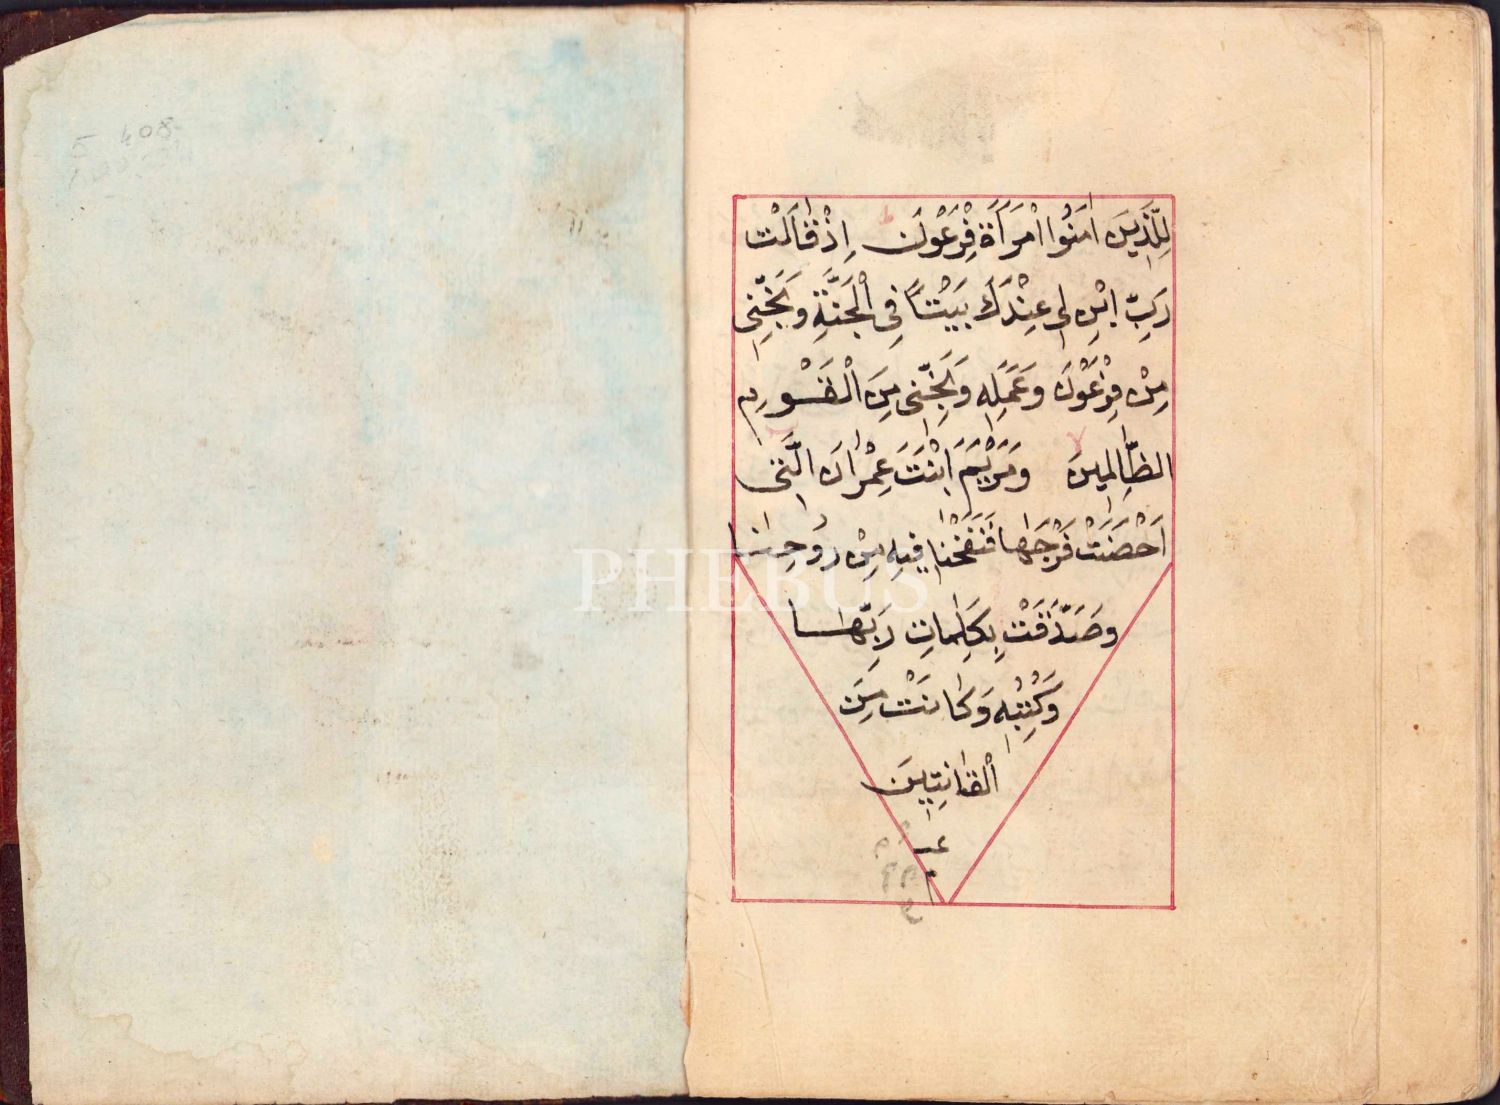 لِلَّذِينَ اٰمَنُوا امْرَاَةَ فِرْعَوْنَ اِذْ قَالَتْ
رَبِّ ابْنِ لِى عِنْدَكَ بَيْتًا فِى الْجَنَّةِ وَنَجِّنِى
مِنْ فِرْعَوْنَ وَعَمَلِهِ وَنَجِّنِى مِنَ الْقَوْمِ
الظَّالِمِينَ لا وَمَرْيَمَ ابْنَتَ عِمْرَانَ الَّتِى
اَحْصَنَتْ فَرْجَهَا فَنَفَخْنَا فِيهِ مِنْ رُوحِنَا
وَصَدَّقَتْ بِكَلِمَاتِ رَبِّهَا
وَكُتُبِهِ وَكَانَتْ مِنَ
الْقَانِتِينَ
PHEBUS
408